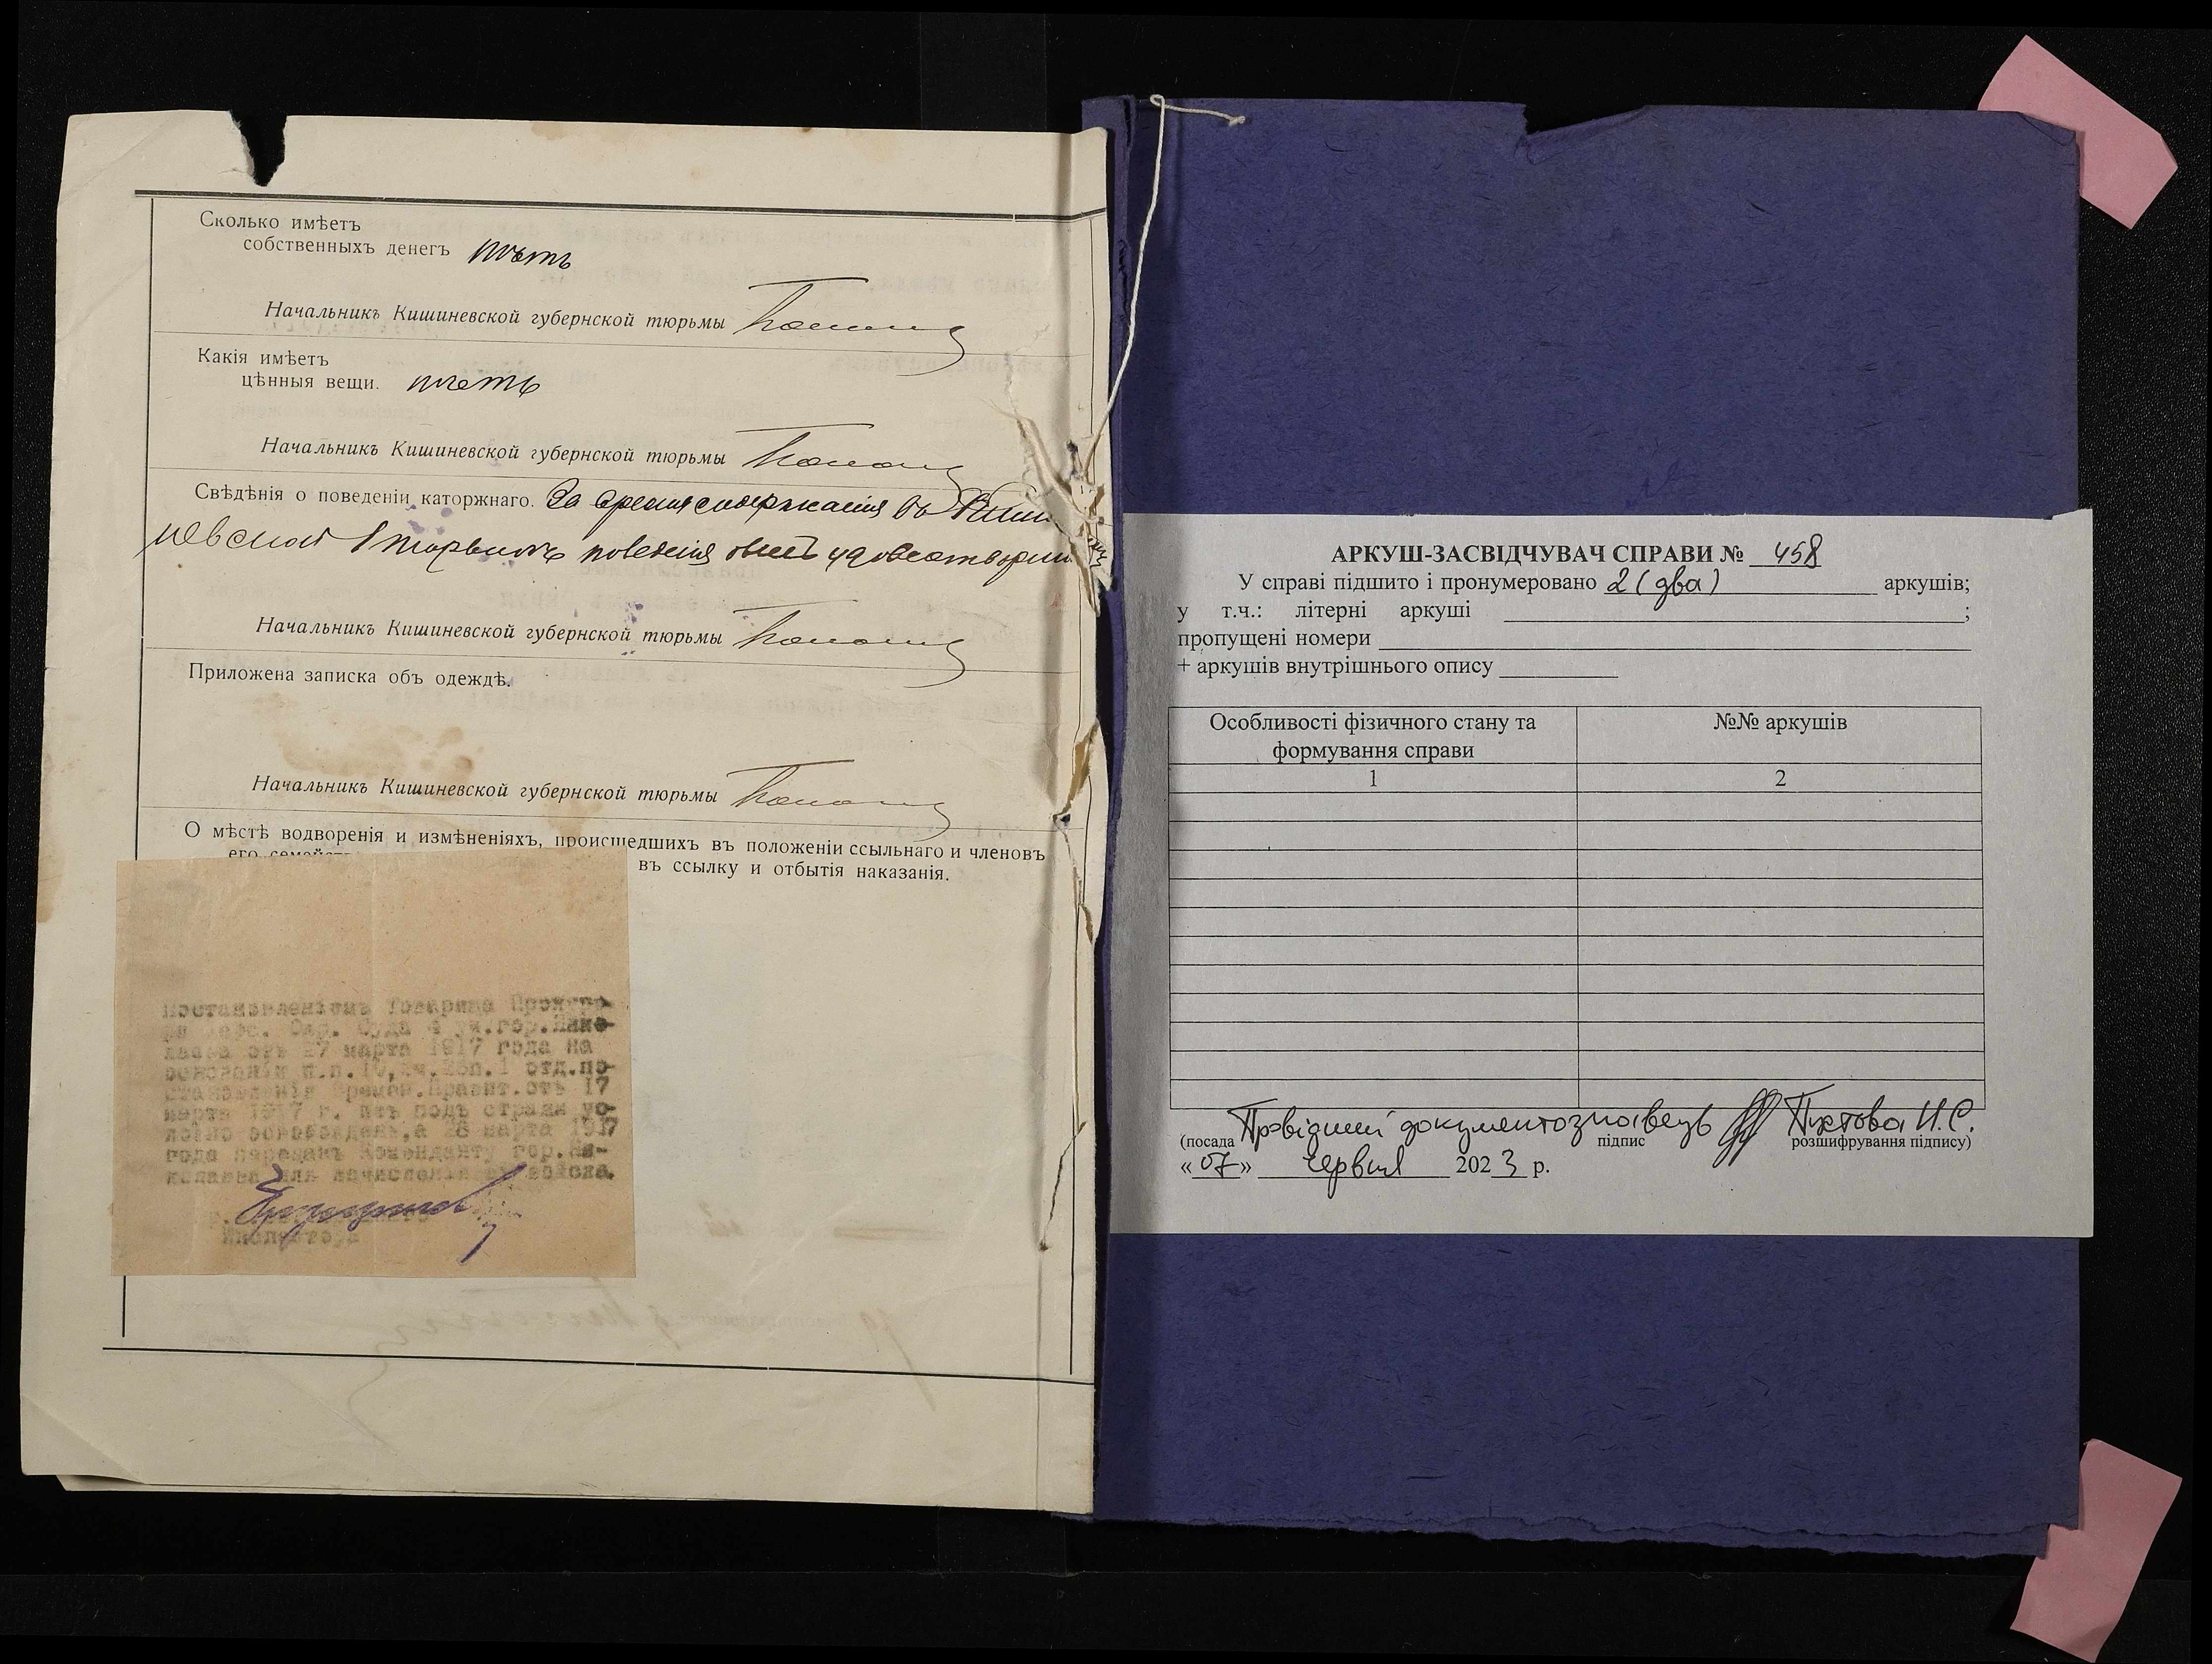 Сколько имѣетъ
собственныхъ денегъ нѣтъ
Начальникъ Кишиневской губернской тюрьмы
Какія имѣетъ
цѣнныя вещи. нѣтъ
Начальникъ Кишиневской губернской тюрьмы
Свѣдѣнія о поведеніи каторжнаго. За время содержанія въ Киши
невской тюрьмѣ поведенія былъ удовлетворит
Начальникъ Кишиневской губернской тюрьмы
Приложена записка объ одеждѣ.
Начальникъ Кишиневской губернской тюрьмы
О мѣстѣ водворенія и измѣненіяхъ, происшедшихъ въ положеніи ссыльнаго и членовъ
его семейст
въ ссылку и отбытія наказанія.
Постановленіемъ Товарища Прокуро-
ра Суда 4 уч. гор. Нико-
лаева отъ 27 марта 1917 года на
основаніи отд. по-
становленія Времен. Правит. отъ 17
марта 1917 г. изъ подъ стражи ус-
ловно освобожденъ, а 28 марта 1917
года переданъ Коменданту гор. Ни-
колаева для зачисленія въ войска.
Инспектора
АРКУШ-ЗАСВІДЧУВАЧ СПРАВИ № 458
У справі підшито і пронумеровано 2 (два) аркушів;
у т.ч.: літерні аркуші ;
пропущені номери
+ аркушів внутрішнього опису
Особливості фізичного стану та
формування справи
№№ аркушів
1 2
Провідний документознавець Пустова Н.С.
(посада підпис розшифрування підпису)
«07» червня 2023 р.